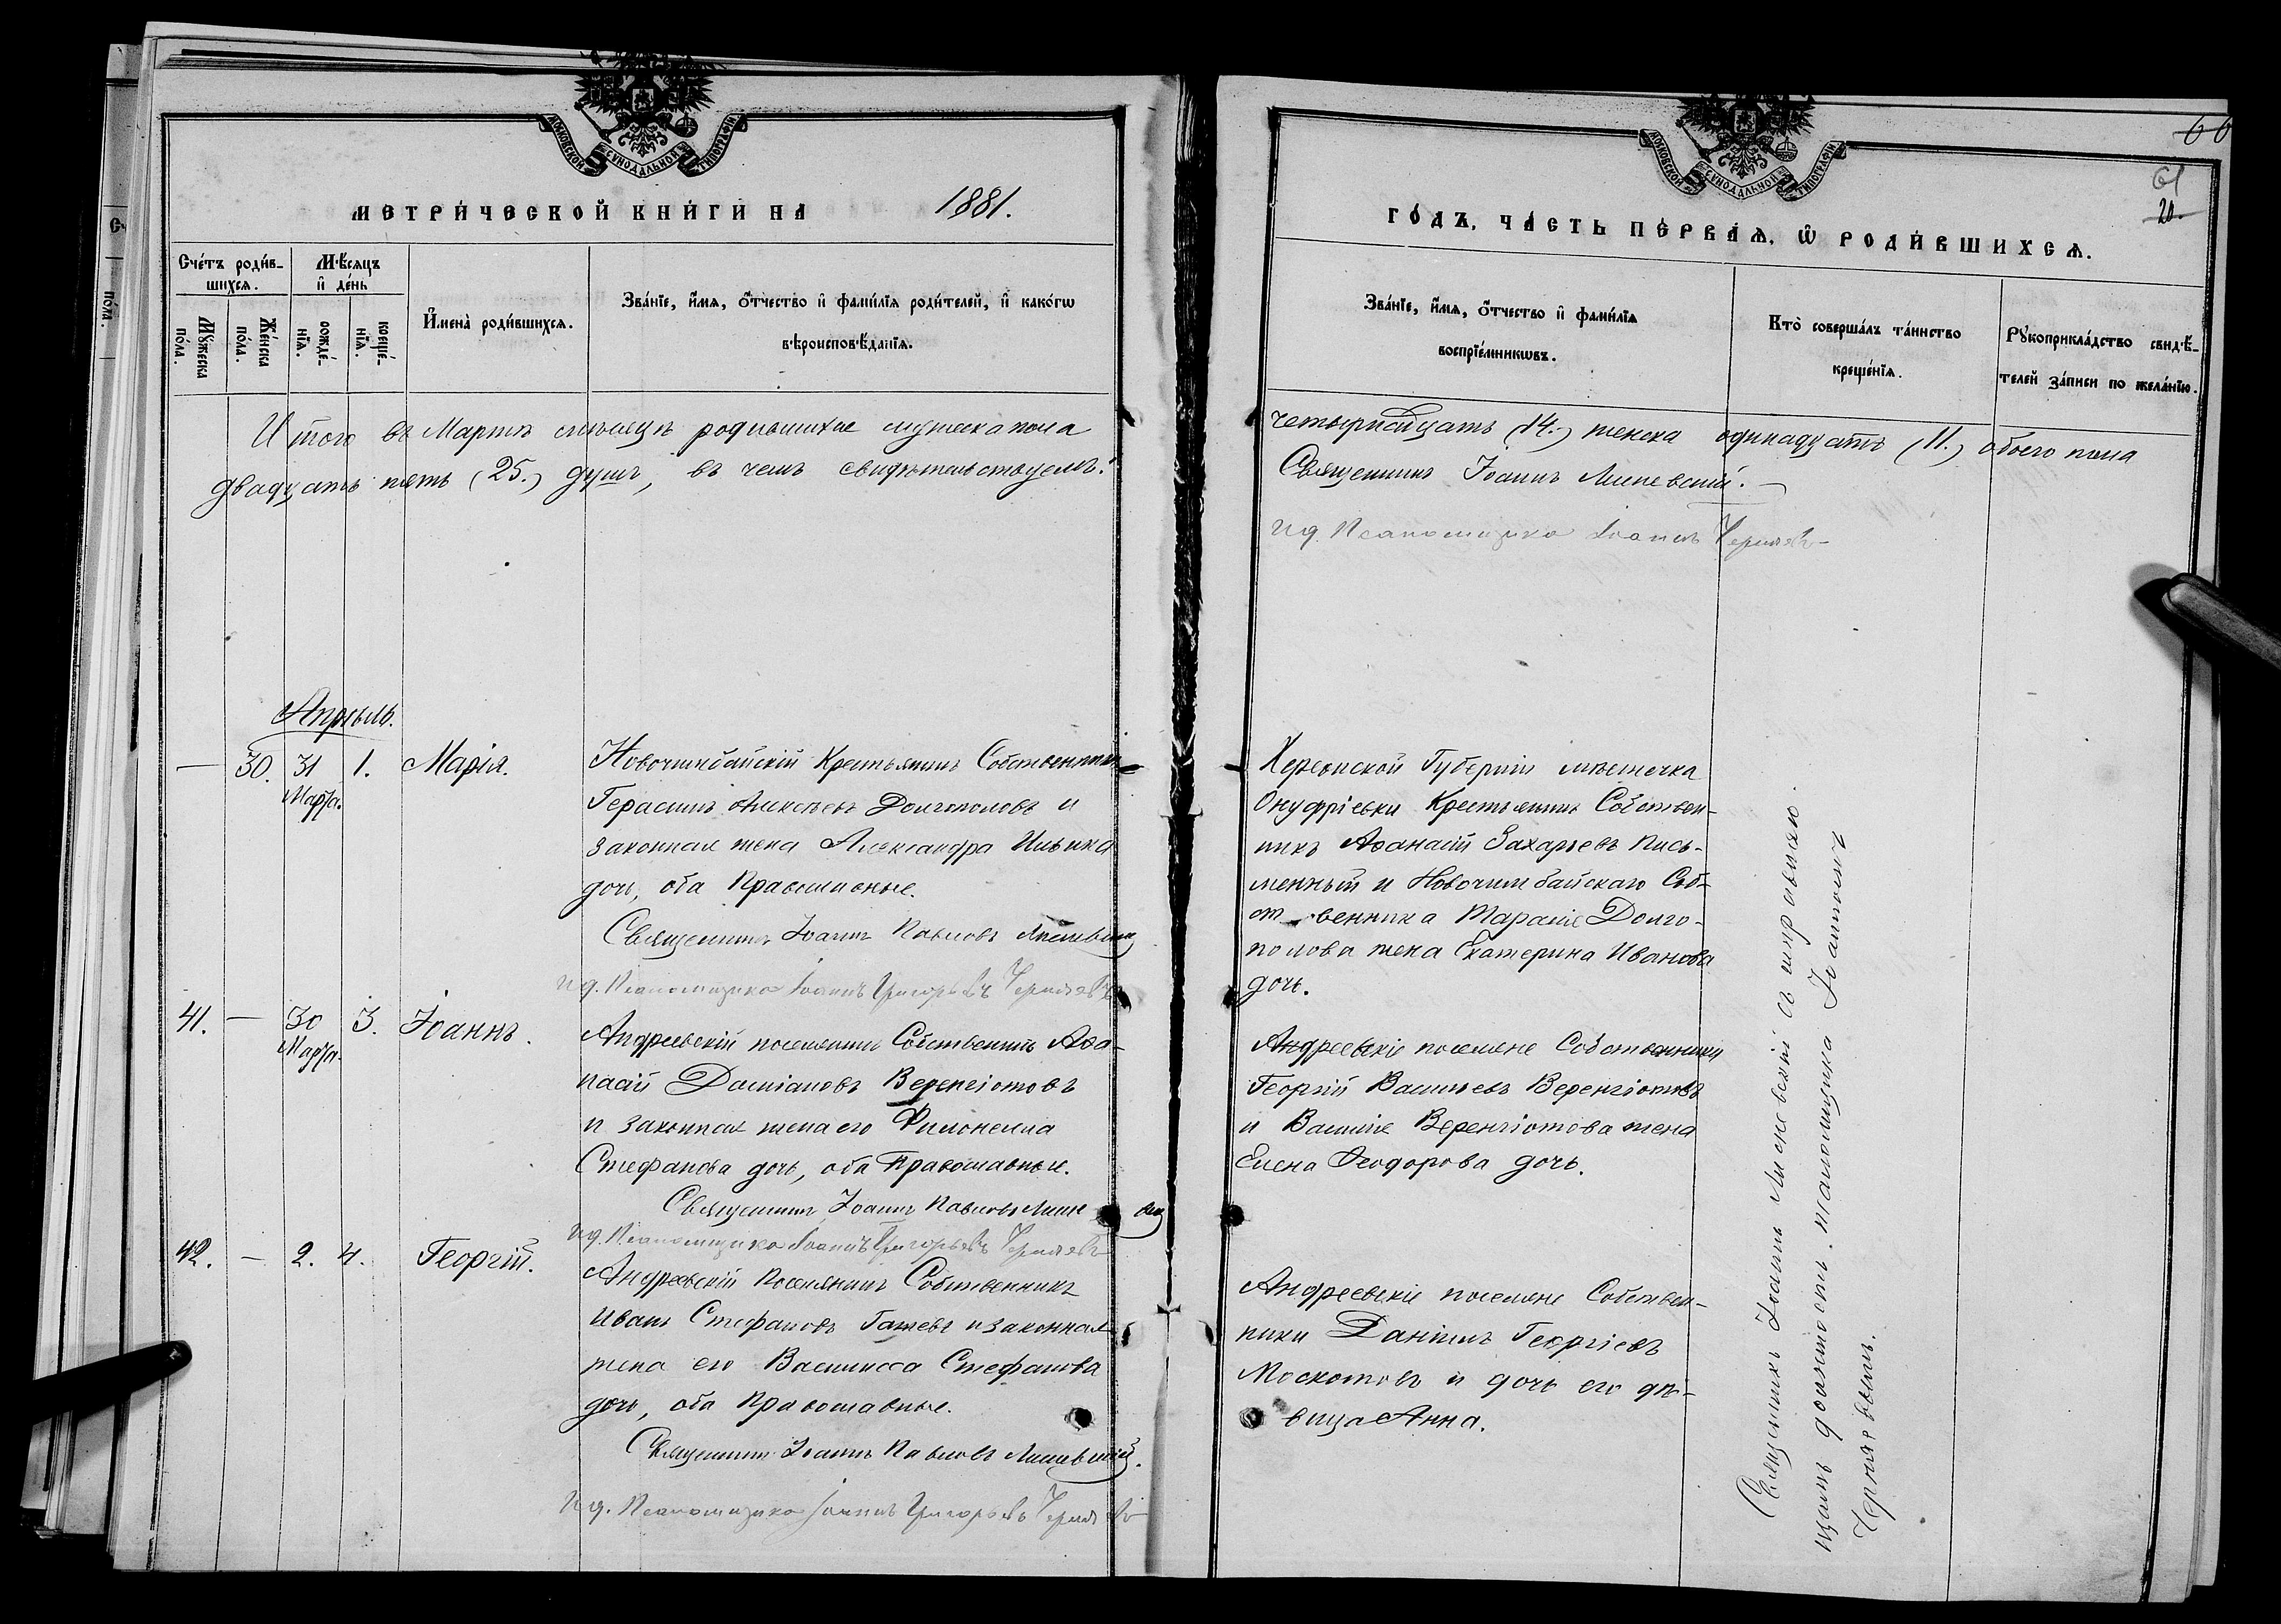 МОСКОВСКОЙ СѴНОДАЛЬНОЙ ТИПОГРАФІИ
МЕТРИ́ЧЕСКОЙ КНИ́ГИ НА 1881.
Сче́тъ роди́в-
шихся.
Мѣ́сяцъ
и҆ де́нь
Мꙋ́жеска
по́ла.
Же́нска
по́ла.
рожде́-
нїя.
креще́-
нїя.
И҆мена̀ роди́вшихся.
Зва́нїе, и҆́мя, ѻ҆́тчество и҆ фами́лїя роди́телей, и҆ како́гѡ
вѣроисповѣ́данїя.
Итого въ Мартѣ мѣсяцѣ родившихся мужеска пола
двадцать пять (25.) душъ, въ чемъ свидѣтельствуемъ:
Апрѣль.
— 30. 31 1. Марія.
Марта.
Новочимбайскій Крестьянинъ Собственникъ
Герасимъ Алексѣевъ Долгополовъ и
законная жена Александра Ильина
дочь, оба Православные.
Священникъ Іоаннъ Павловъ Липевскій
Ид. Псаломщика Іоаннъ Григорьевъ Черняевъ
41. — 30 3. Іоаннъ.
Марта.
Андреевскій поселянинъ Собственникъ Аѳа-
насій Даміановъ Веренгіотовъ
и законная жена его Филонелла
Стефанова дочь, оба Православные.
Священникъ Іоаннъ Павловъ
Ид. Псаломщика Іоаннъ Григорьевъ Черняевъ
42. — 2. 4. Георгій.
Андреевскій Поселянинъ Собственникъ
Иванъ Стефановъ Гажевъ и законная
жена его Василисса Стефанова
дочь, оба Православные.
Священникъ Іоаннъ Павловъ Липевскій.
Ид. Псаломщика Іоаннъ Григорьевъ Черняевъ
МОСКОВСКОЙ СѴНОДАЛЬНОЙ ТИПОГРАФІИ
60
61
20.
ГО́ДЪ, ЧА́СТЬ ПЕ́РВАЯ, Ѡ҆ РОДИ́ВШИХСЯ.
Зва́нїе, и҆́мя, ѻ҆́тчество и҆ фами́лїя
воспрїе́мникѡвъ.
Кто̀ соверша́лъ та́инство
креще́нїя.
Рꙋкоприкла́дство свидѣ́-
телей за́писи по жела́нїю.
четырнадцать (14.) женска одинадцать (11.) обоего пола
Священникъ Іоаннъ Липевскій.
Ид. Псаломщика Іоаннъ Черняевъ
Херсонской Губерніи мѣстечка
Онуфріевки Крестьянинъ Собствен-
никъ Аѳанасій Захарьевъ Пись-
менный и Новочимбайскаго Соб-
ственника Тарасія Долго-
полова жена Екатерина Иванова
дочь.
Андреевскіе поселяне Собственники
Георгій Васильевъ Веренгіотовъ
и Василія Веренгіотова жена
Елена Ѳеодорова дочь.
Андреевскіе поселяне Собствен-
ники Даніилъ Георгіевъ
Москотовъ и дочь его дѣ-
вица Анна.
Священникъ Іоаннъ Липевскій съ исправляю-
щимъ должность псаломщика Іоанномъ
Черняевымъ.